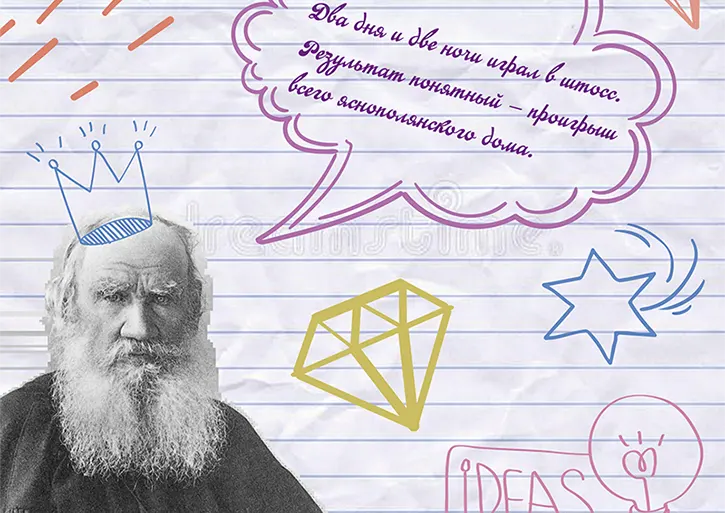 Два дня и две ночи играл в штосс.
Результат понятный – проигрыш
всего яснополянского дома.
dreamstime
IDEAS